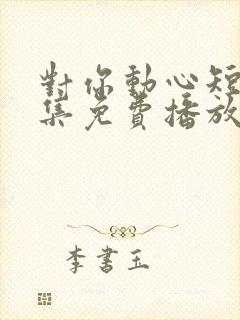 對你動心短
集免費播放
李書玉